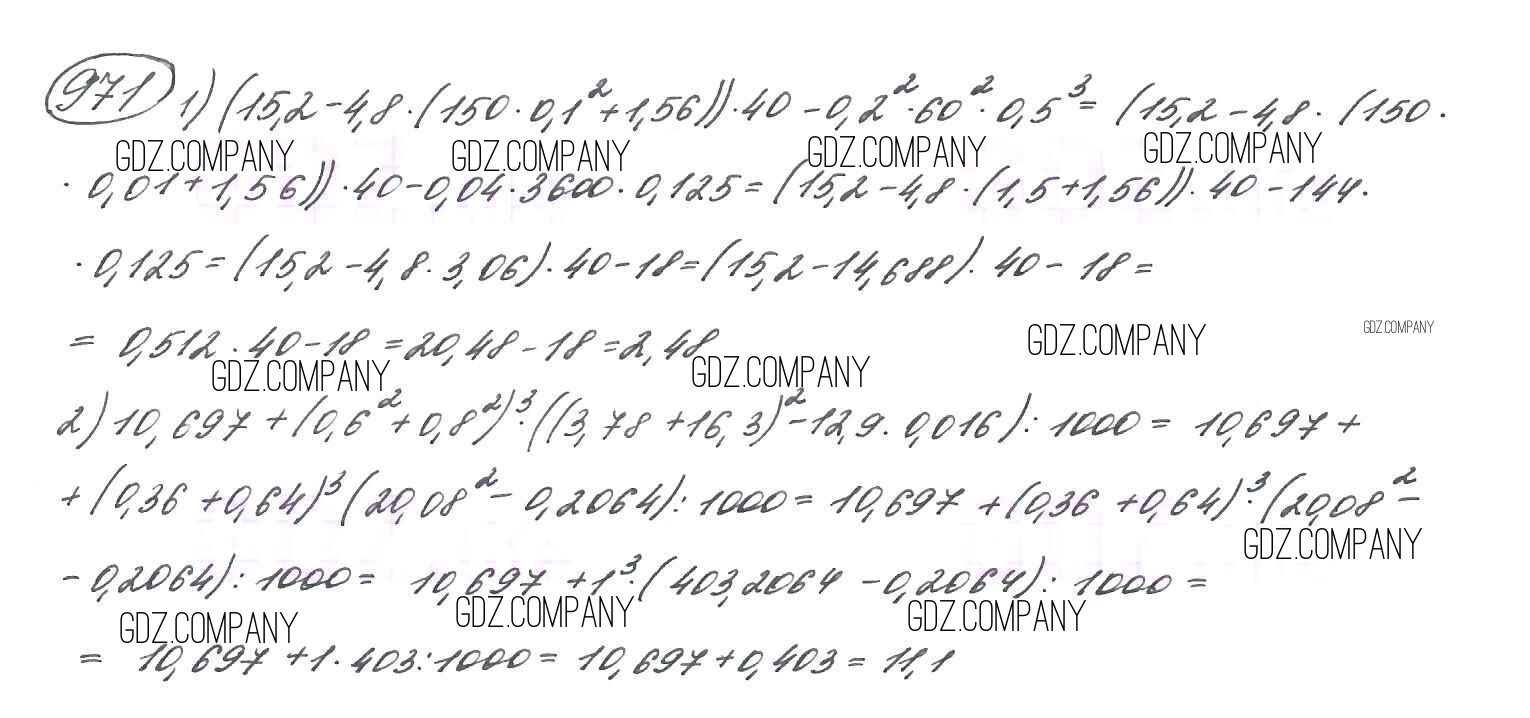 971 1) (15,2 - 4,8 · (150 · 0,1² + 1,56)) · 40 - 0,2² · 60² · 0,5³ = (15,2 - 4,8 · (150 ·
GDZ.COMPANY GDZ.COMPANY GDZ.COMPANY GDZ.COMPANY
· 0,01 + 1,56)) · 40 - 0,04 · 3600 · 0,125 = (15,2 - 4,8 · (1,5 + 1,56)) · 40 - 144 ·
· 0,125 = (15,2 - 4,8 · 3,06) · 40 - 18 = (15,2 - 14,688) · 40 - 18 =
= 0,512 · 40 - 18 = 20,48 - 18 = 2,48
GDZ.COMPANY GDZ.COMPANY
GDZ.COMPANY GDZ.COMPANY
2) 10,697 + (0,6² + 0,8²)³ · ((3,78 + 16,3)² - 12,9 · 0,016) : 1000 = 10,697 +
+ (0,36 + 0,64)³ (20,08² - 0,2064) : 1000 = 10,697 + (0,36 + 0,64)³ · (20,08² -
GDZ.COMPANY
- 0,2064) : 1000 = 10,697 + 1³ · (403,2064 - 0,2064) : 1000 =
GDZ.COMPANY GDZ.COMPANY GDZ.COMPANY
= 10,697 + 1 · 403 : 1000 = 10,697 + 0,403 = 11,1